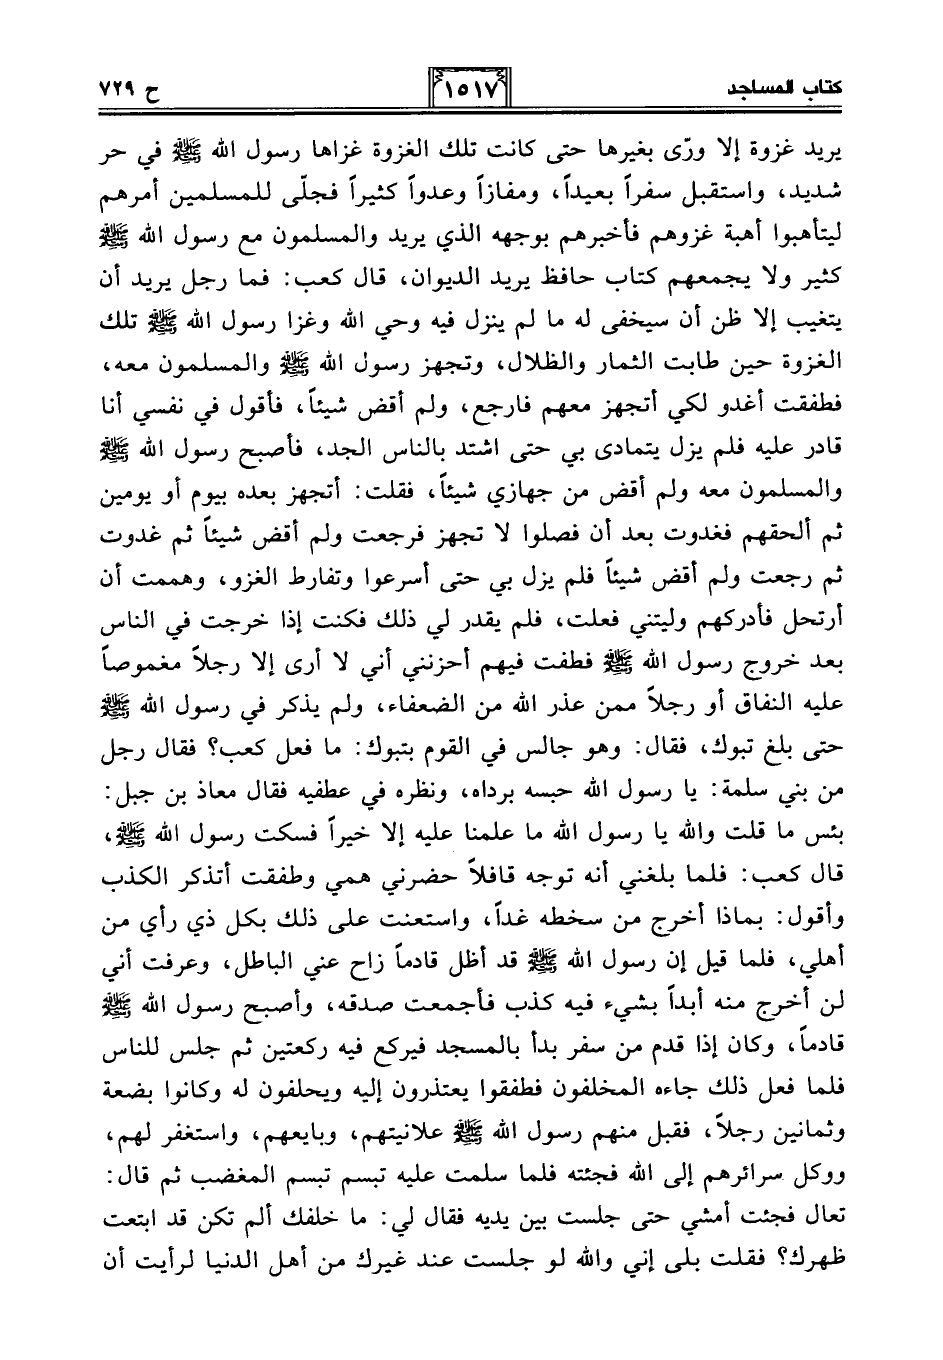 كتاب المساجد ١٥١٧ ح ٧٢٩
يريد غزوة إلا ورّى بغيرها حتى كانت تلك الغزوة غزاها رسول الله ﷺ في حر
شديد، واستقبل سفراً بعيداً، ومفازاً وعدواً كثيراً فجلّى للمسلمين أمرهم
ليتأهبوا أهبة غزوهم فأخبرهم بوجهه الذي يريد والمسلمون مع رسول الله ﷺ
كثير ولا يجمعهم كتاب حافظ يريد الديوان، قال كعب: فما رجل يريد أن
يتغيب إلا ظن أن سيخفى له ما لم ينزل فيه وحي الله وغزا رسول الله ﷺ تلك
الغزوة حين طابت الثمار والظلال، وتجهز رسول الله ﷺ والمسلمون معه،
فطفقت أغدو لكي أتجهز معهم فارجع، ولم أقض شيئاً، فأقول في نفسي أنا
قادر عليه فلم يزل يتمادى بي حتى اشتد بالناس الجد، فأصبح رسول الله ﷺ
والمسلمون معه ولم أقض من جهازي شيئاً، فقلت: أتجهز بعده بيوم أو يومين
ثم ألحقهم فغدوت بعد أن فصلوا لا تجهز فرجعت ولم أقض شيئاً ثم غدوت
ثم رجعت ولم أقض شيئاً فلم يزل بي حتى أسرعوا وتفارط الغزو، وهممت أن
أرتحل فأدركهم وليتني فعلت، فلم يقدر لي ذلك فكنت إذا خرجت في الناس
بعد خروج رسول الله ﷺ فطفت فيهم أحزنني أني لا أرى إلا رجلاً مغموصاً
عليه النفاق أو رجلاً ممن عذر الله من الضعفاء، ولم يذكر في رسول الله ﷺ
حتى بلغ تبوك، فقال: وهو جالس في القوم بتبوك: ما فعل كعب؟ فقال رجل
من بني سلمة: يا رسول الله حبسه برداه، ونظره في عطفيه فقال معاذ بن جبل:
بئس ما قلت والله يا رسول الله ما علمنا عليه إلا خيراً فسكت رسول الله ﷺ،
قال كعب: فلما بلغني أنه توجه قافلاً حضرني همي وطفقت أتذكر الكذب
وأقول: بماذا أخرج من سخطه غداً، واستعنت على ذلك بكل ذي رأي من
أهلي، فلما قيل إن رسول الله ﷺ قد أظل قادماً زاح عني الباطل، وعرفت أني
لن أخرج منه أبداً بشيء فيه كذب فأجمعت صدقه، وأصبح رسول الله ﷺ
قادماً، وكان إذا قدم من سفر بدأ بالمسجد فيركع فيه ركعتين ثم جلس للناس
فلما فعل ذلك جاءه المخلفون فطفقوا يعتذرون إليه ويحلفون له وكانوا بضعة
وثمانين رجلاً، فقبل منهم رسول الله ﷺ علانيتهم، وبايعهم، واستغفر لهم،
ووكل سرائرهم إلى الله فجئته فلما سلمت عليه تبسم تبسم المغضب ثم قال:
تعال فجئت أمشي حتى جلست بين يديه فقال لي: ما خلفك ألم تكن قد ابتعت
ظهرك؟ فقلت بلى إني والله لو جلست عند غيرك من أهل الدنيا لرأيت أن